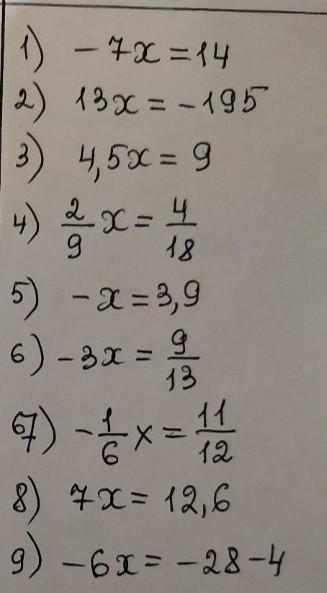 1) -7x = 14
2) 13x = -195
3) 4,5x = 9
4) 2/9 x = 4/18
5) -x = 3,9
6) -3x = 9/13
7) -1/6 x = 11/12
8) 7x = 12,6
9) -6x = -28-4